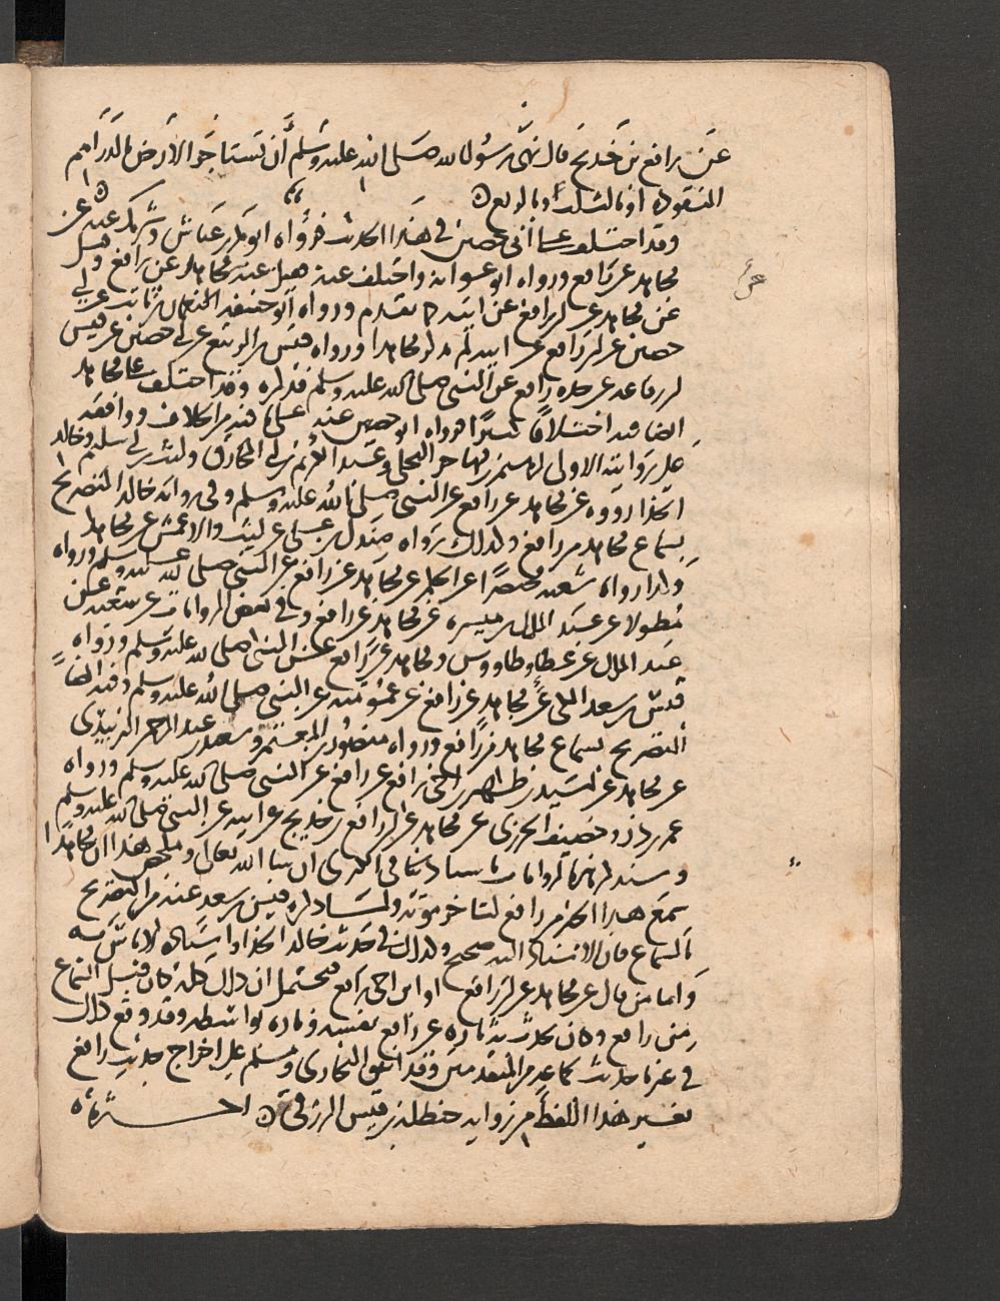 عن رافع بن خديج قال نهى رسول الله صلى الله عليه وسلم أن تستأجر الأرض بالدراهم
المنقودة أو بالثلث أو بالربع
وقد اختلف على أبي حصين في هذا الحديث فرواه أبو بكر بن عياش وشريك عنه عن
مجاهد عن رافع ورواه أبو عوانة واختلف عنه فقيل عنه مجاهد عن رافع وقيل
عن مجاهد عن ابن رافع عن أبيه كما تقدم ورواه أبو حنيفة النعمان بن ثابت عن أبي
حصين عن ابن رافع عن أبيه لم يذكر مجاهدا ورواه قيس بن الربيع عن أبي حصين عن قيس
ابن رفاعة عن جده رافع عن النبي صلى الله عليه وسلم فذكره وقد اختلف على مجاهد
أيضا فيه اختلافا كثيرا فرواه أبو حصين عنه على ما فيه من الخلاف ووافقه
على روايته الأولى إبراهيم بن مهاجر البجلي وعبد الكريم بن أبي المخارق وليث بن أبي سليم وخالد
الحذاء رووه عن مجاهد عن رافع عن النبي صلى الله عليه وسلم وفي رواية خالد التصريح
بسماع مجاهد من رافع وكذلك رواه مندل بن علي عن ليث والأعمش عن مجاهد
وكذا رواه شعبة مختصرا عن الحكم عن مجاهد عن رافع عن النبي صلى الله عليه وسلم ورواه
مطولا عن عبد الملك بن ميسرة عن مجاهد عن رافع وفي بعض الروايات عن شعبة عن
عبد الملك عن عطاء وطاووس ومجاهد عن رافع عن النبي صلى الله عليه وسلم ورواه
قيس بن سعد المكي عن مجاهد عن رافع عن عمومته عن النبي صلى الله عليه وسلم وفيه أيضا
التصريح بسماع مجاهد من رافع ورواه منصور بن المعتمر وسعيد بن عبد الرحمن الزبيدي
عن مجاهد عن أسيد بن ظهير ابن أخي رافع عن رافع عن النبي صلى الله عليه وسلم ورواه
عمر بن ذر وخصيف الجزري عن مجاهد عن ابن رافع بن خديج عن أبيه عن النبي صلى الله عليه وسلم
وسنذكر هذه الروايات بأسانيدها في الكبرى إن شاء الله تعالى وملخص هذا أن مجاهدا
سمع هذا الخبر من رافع لتأخر موته ولما ذكره قيس بن سعد عنه من التصريح
بالسماع فإن الإسناد إليه صحيح وكذلك في حديث خالد الحذاء وإسناده لا بأس به
وأما من قال عن مجاهد عن ابن رافع أو ابن أخي رافع فيحتمل أن ذلك كله كان قبل السماع
من رافع وكان يحدث به تارة عن رافع نفسه وتارة بواسطة وقد وقع ذلك
في غير ما حديث لجماعة من المتقدمين وقد اتفق البخاري ومسلم على إخراج حديث رافع
بغير هذا اللفظ من رواية حنظلة بن قيس الزرقي